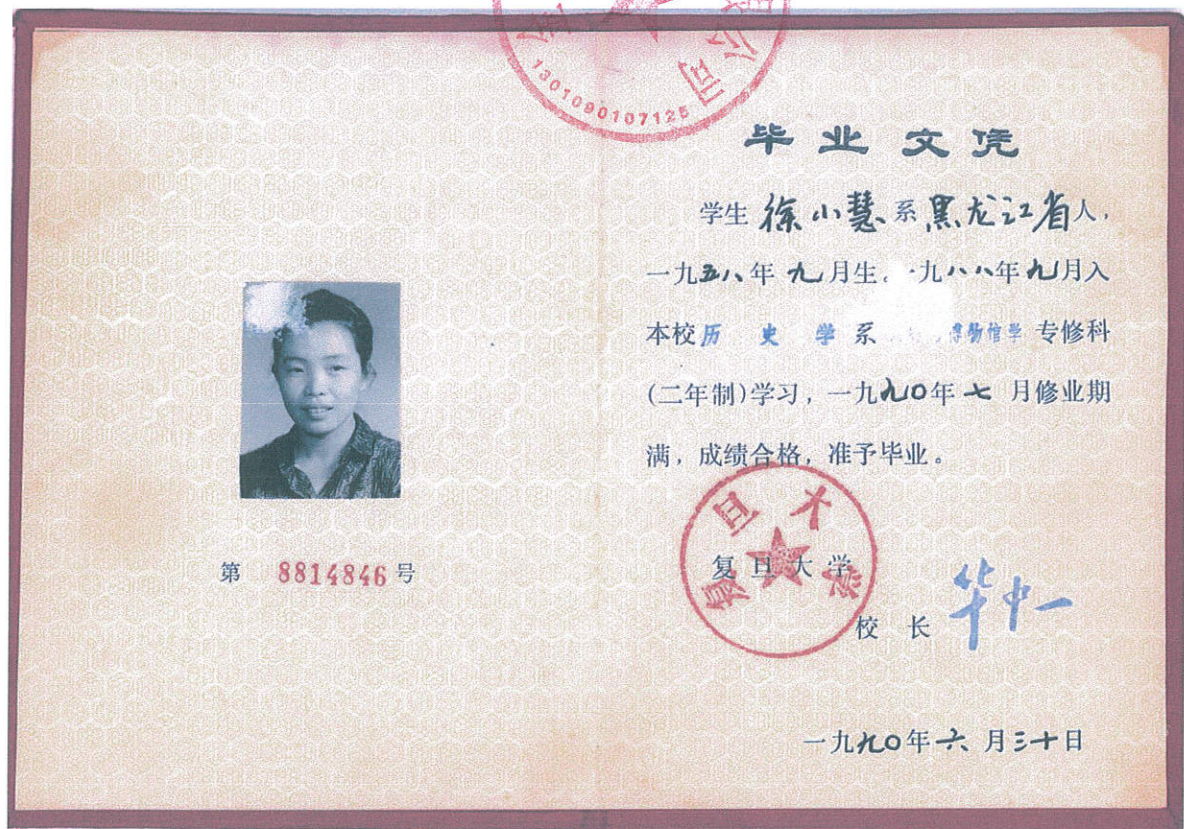 公司
1301090107125
毕业文凭
学生 徐小慧 系 黑龙江省 人，
一九五八年 九月生。一九八八年九月入
本校 历 史 学 系 博物馆学 专修科
(二年制)学习，一九九〇年 七 月修业期
满，成绩合格，准予毕业。
复旦大学
复旦大学
校 长 华中一
一九九〇年 六 月三十日
第 8814846 号